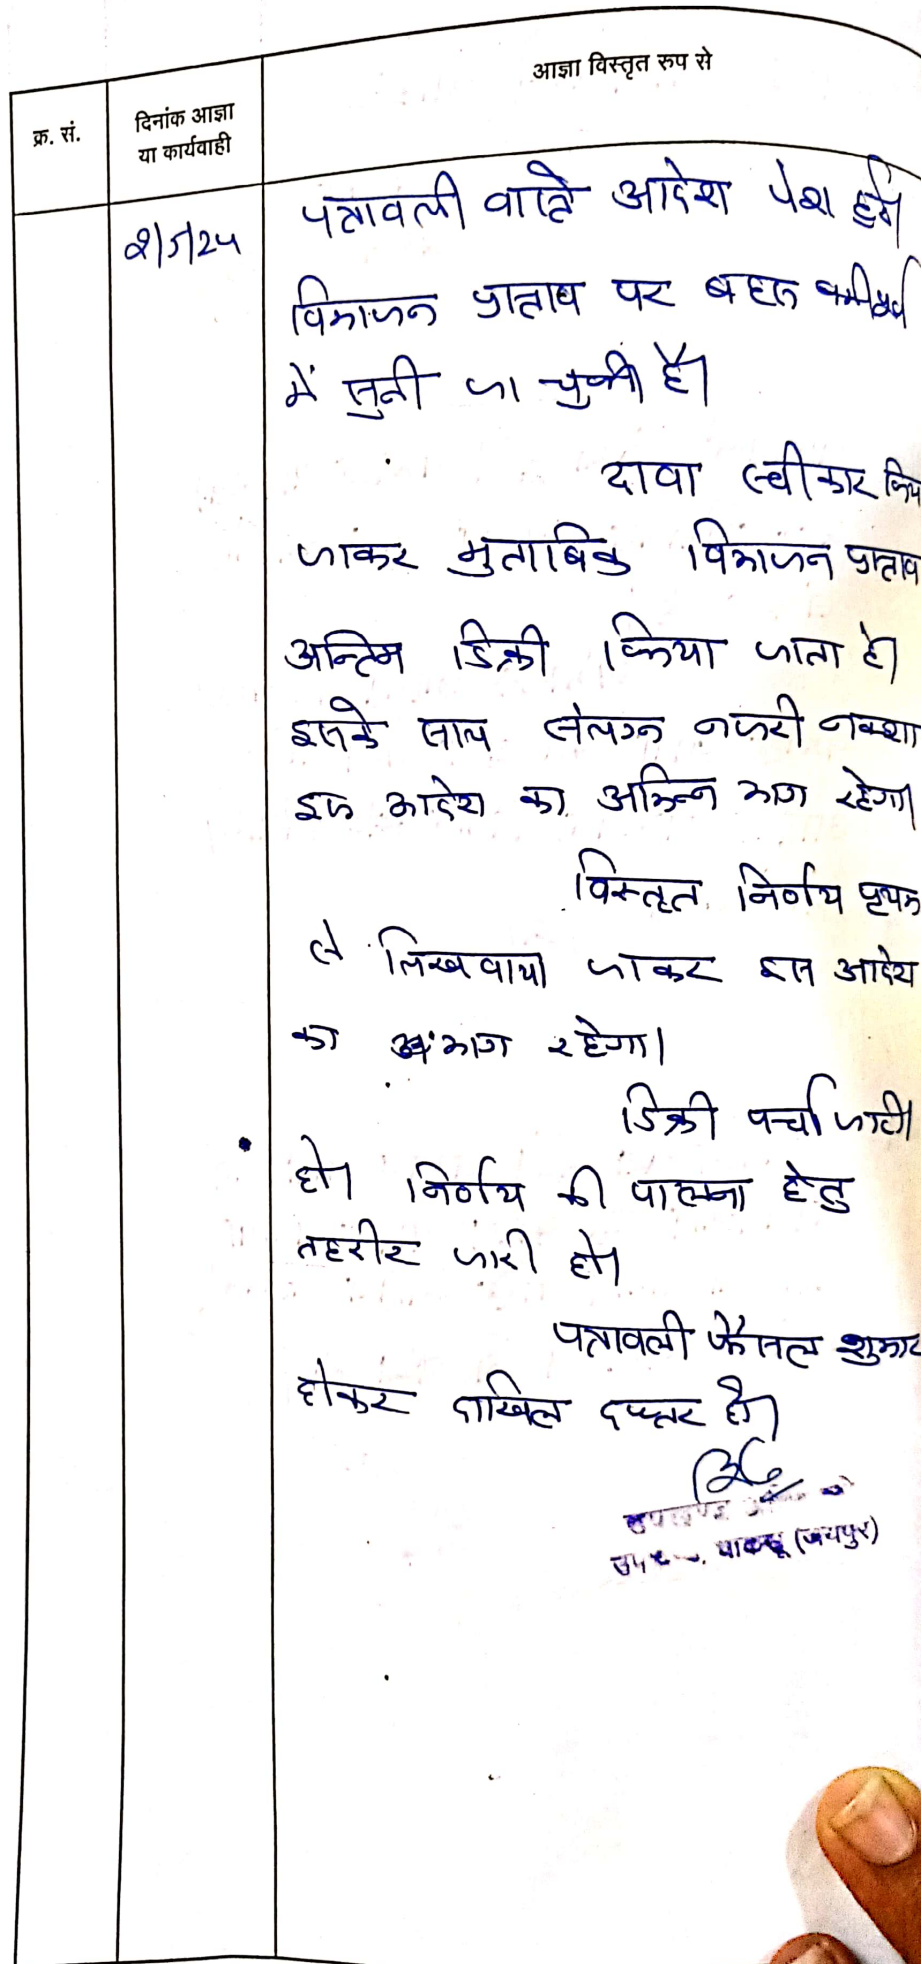 आज्ञा विस्तृत रुप से
क्र. सं.
दिनांक आज्ञा
या कार्यवाही
पत्रावली वास्ते आदेश पेश हुई।
विभाजन प्रस्ताव पर बहस
में सुनी जा चुकी है।
दावा स्वीकार किया
जाकर मुताबिक विभाजन प्रस्ताव
अन्तिम डिक्री किया जाता है।
इसके साथ संलग्न नजरी नक्शा
इस आदेश का अभिन्न भाग रहेगा।
विस्तृत निर्णय पृथक
से लिखवाया जाकर इस आदेश
का भाग रहेगा।
डिक्री पर्चा जारी
हो। निर्णय की पालना हेतु
तहरीर जारी हो।
पत्रावली फैसल शुमार
होकर दाखिल दफ्तर हो।
(जयपुर)